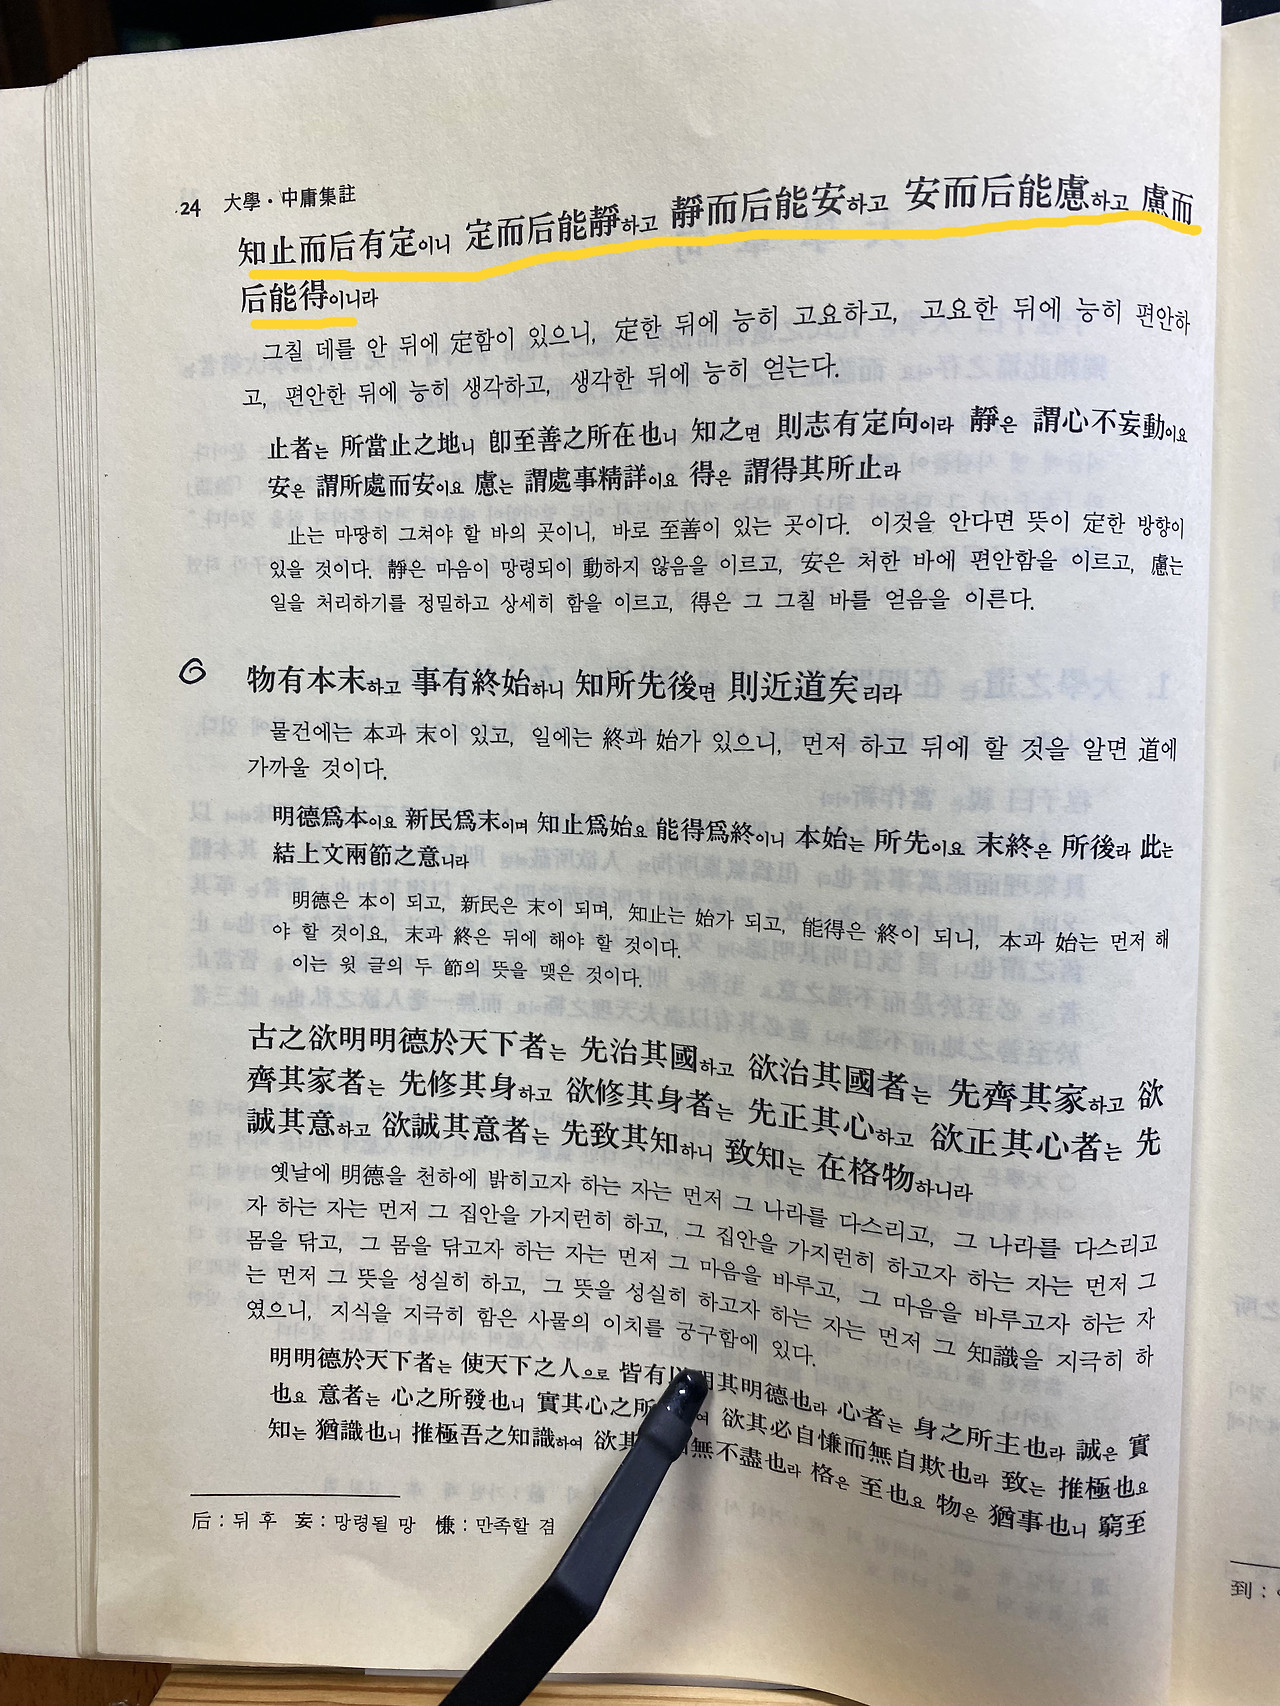 24 大學・中庸集註
知止而后有定이니 定而后能靜하고 靜而后能安하고 安而后能慮하고 慮而
后能得이니라
그칠 데를 안 뒤에 定함이 있으니, 定한 뒤에 능히 고요하고, 고요한 뒤에 능히 편안하
고, 편안한 뒤에 능히 생각하고, 생각한 뒤에 능히 얻는다.
止者는 所當止之地니 卽至善之所在也니 知之면 則志有定向이라 靜은 謂心不妄動이요
安은 謂所處而安이요 慮는 謂處事精詳이요 得은 謂得其所止라
止는 마땅히 그쳐야 할 바의 곳이니, 바로 至善이 있는 곳이다. 이것을 안다면 뜻이 定한 방향이
있을 것이다. 靜은 마음이 망령되이 動하지 않음을 이르고, 安은 처한 바에 편안함을 이르고, 慮는
일을 처리하기를 정밀하고 상세히 함을 이르고, 得은 그 그칠 바를 얻음을 이른다.
物有本末하고 事有終始하니 知所先後면 則近道矣리라
물건에는 本과 末이 있고, 일에는 終과 始가 있으니, 먼저 하고 뒤에 할 것을 알면 道에
가까울 것이다.
明德爲本이요 新民爲末이며 知止爲始요 能得爲終이니 本始는 所先이요 末終은 所後라 此는
結上文兩節之意니라
明德은 本이 되고, 新民은 末이 되며, 知止는 始가 되고, 能得은 終이 되니, 本과 始는 먼저 해
야 할 것이요, 末과 終은 뒤에 해야 할 것이다.
이는 윗 글의 두 節의 뜻을 맺은 것이다.
古之欲明明德於天下者는 先治其國하고 欲治其國者는 先齊其家하고 欲
齊其家者는 先修其身하고 欲修其身者는 先正其心하고 欲正其心者는 先
誠其意하고 欲誠其意者는 先致其知하니 致知는 在格物하니라
옛날에 明德을 천하에 밝히고자 하는 자는 먼저 그 나라를 다스리고, 그 나라를 다스리고
자 하는 자는 먼저 그 집안을 가지런히 하고, 그 집안을 가지런히 하고자 하는 자는 먼저 그
몸을 닦고, 그 몸을 닦고자 하는 자는 먼저 그 마음을 바루고, 그 마음을 바루고자 하는 자
는 먼저 그 뜻을 성실히 하고, 그 뜻을 성실히 하고자 하는 자는 먼저 그 知識을 지극히 하
였으니, 지식을 지극히 함은 사물의 이치를 궁구함에 있다.
明明德於天下者는 使天下之人으로 皆有以明其明德也라 心者는 身之所主也라 誠은 實
也요 意者는 心之所發也니 實其心之所 여 欲其必自慊而無自欺也라 致는 推極也요
知는 猶識也니 推極吾之知識하여 欲其 無不盡也라 格은 至也요 物은 猶事也니 窮至
后 : 뒤 후 妄 : 망령될 망 慊 : 만족할 겸
到 :